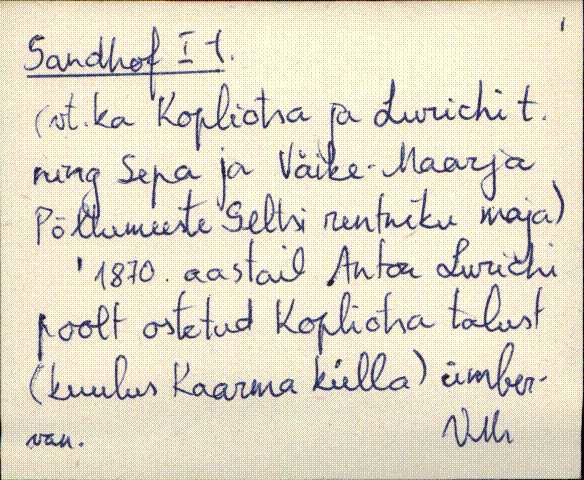 Sandhof I t.
(vt. ka Kopliotsa ja Lurichi t.
ning Sepa ja Väike-Maarja
Põllumeeste Seltsi rentniku maja)
1870. aastail Anton Lurichi
poolt ostetud Kopliotsa talust
(kuulus Kaarma külla) ümber-